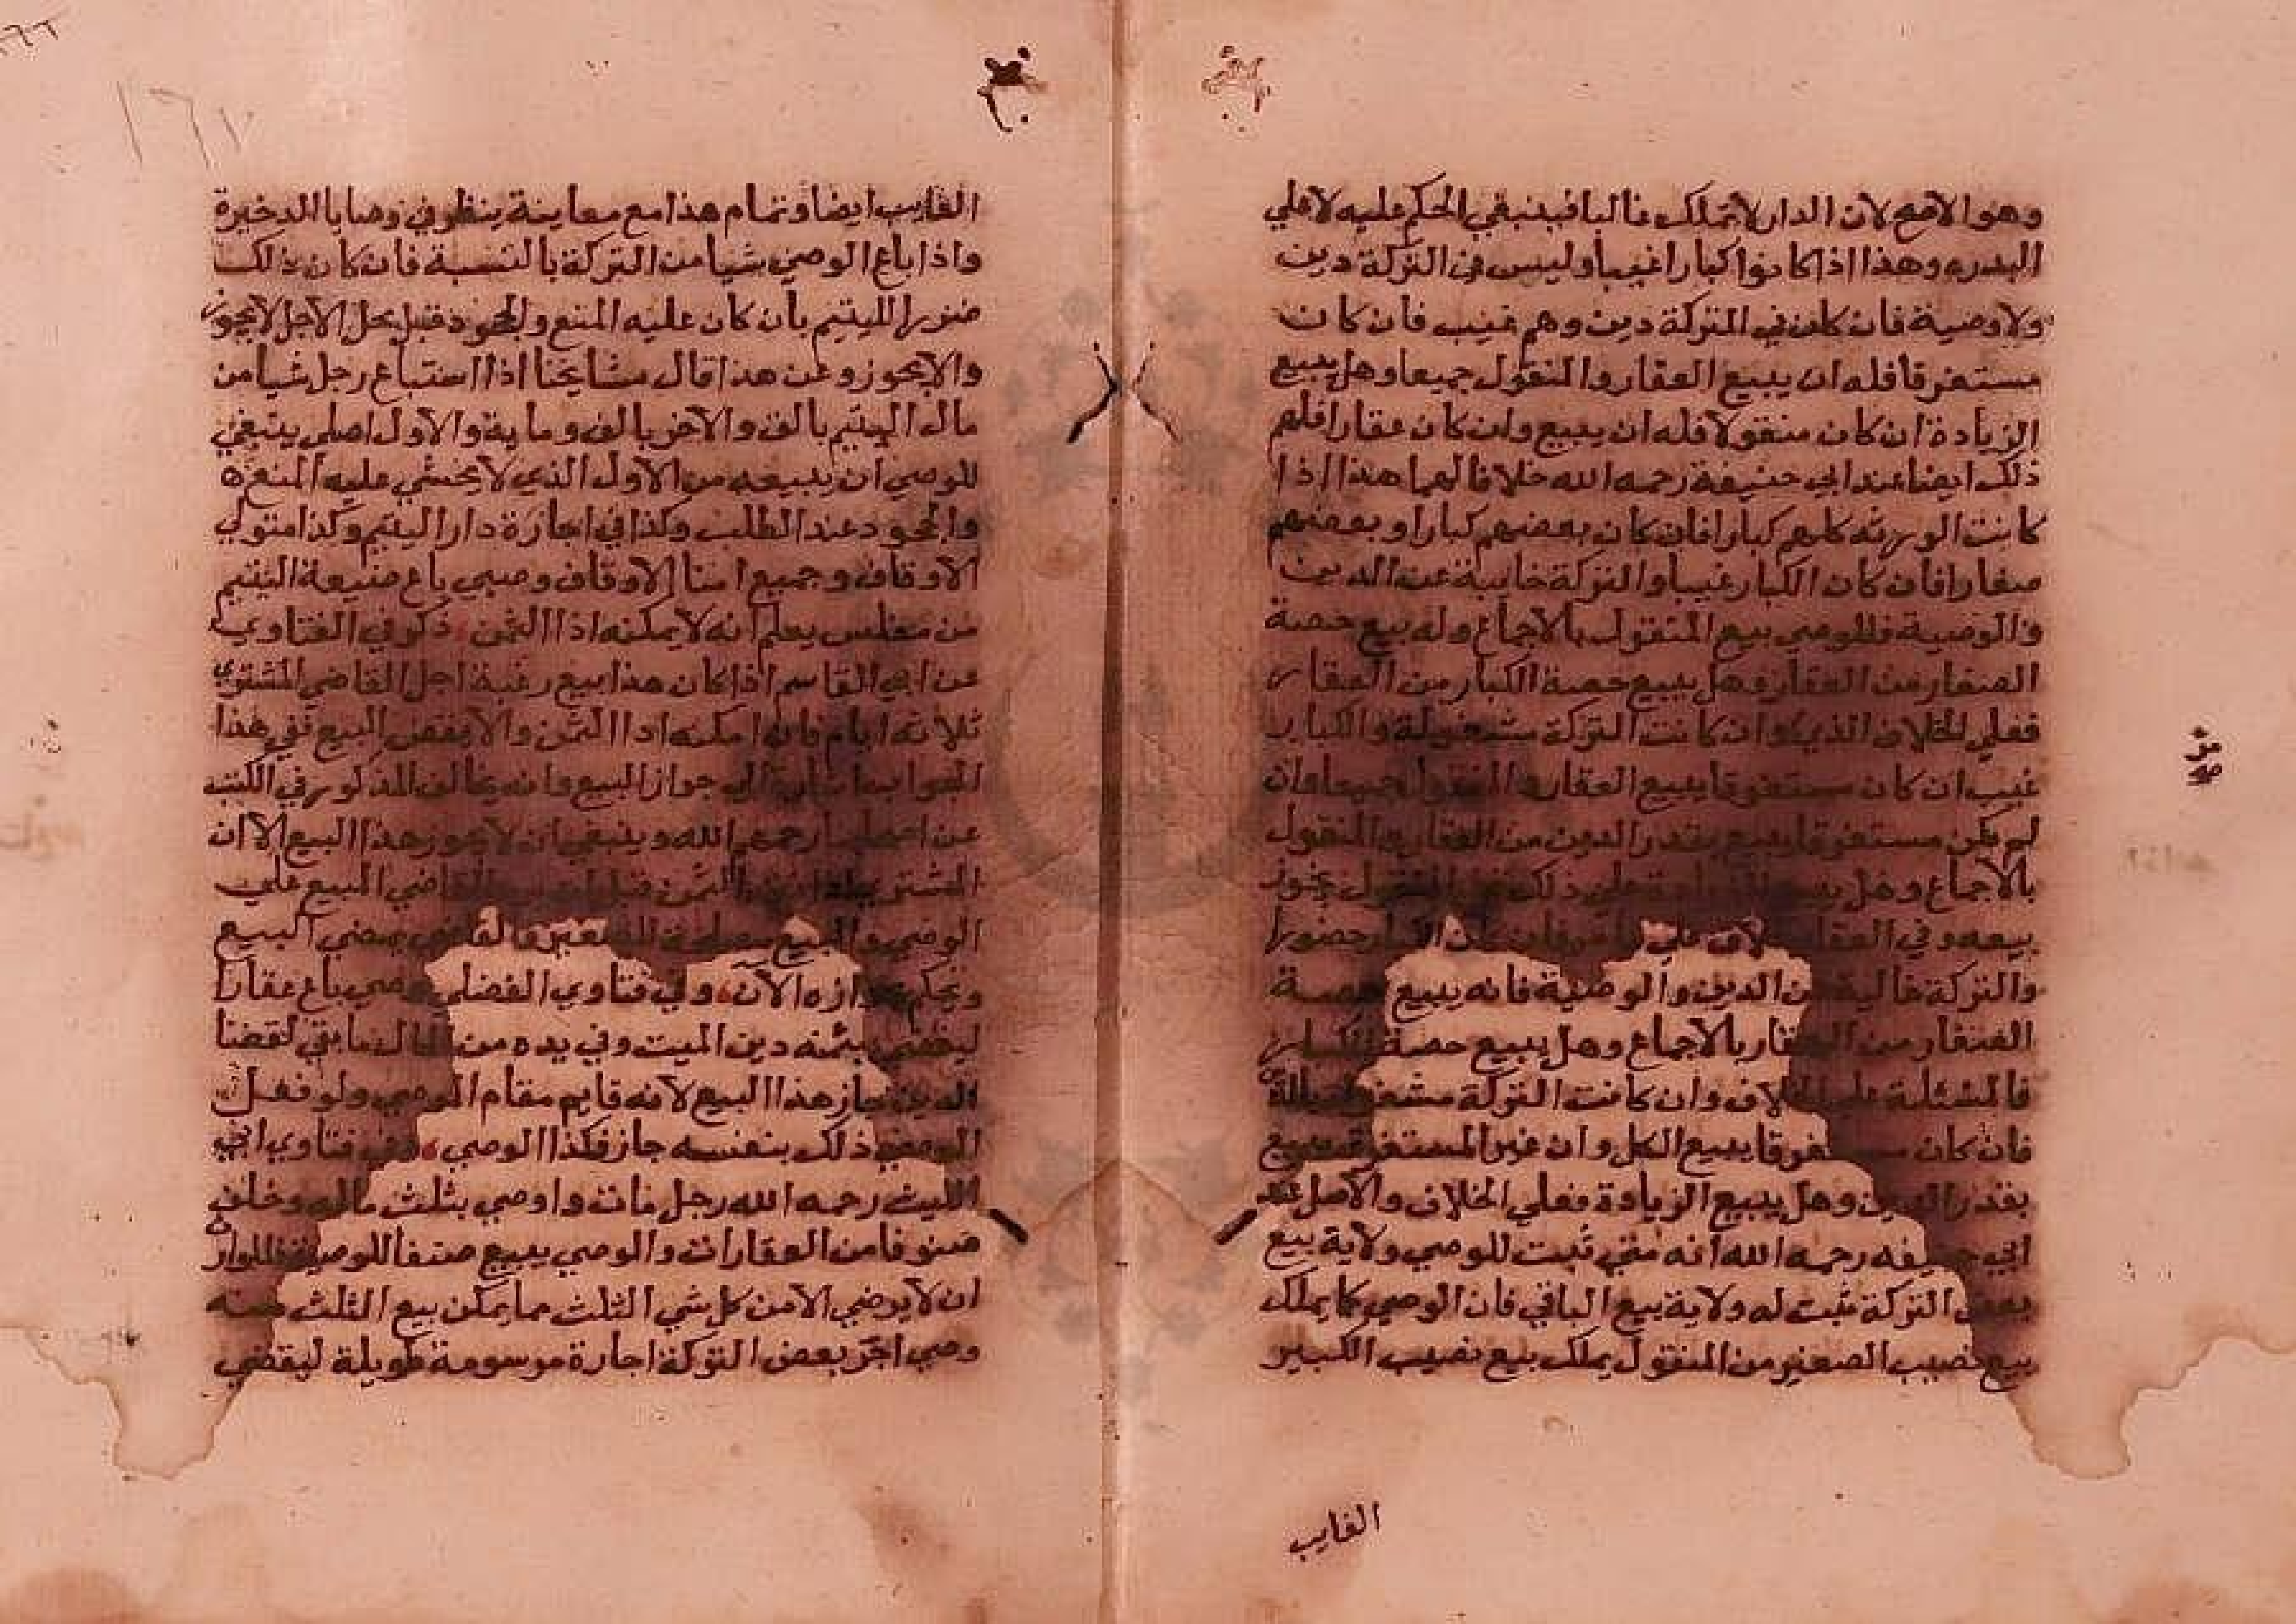 وهو الاصح لان الدار لا تملك غالبا فينبغي الحكم عليه لا على
البدره وهذا اذا كانوا كبارا غيبا وليس في التركة دين
ولا وصية فان كان في التركة دين وهم غيب فان كان
مستغرقا فله ان يبيع العقار والمنقول جميعا وهل يبيع
الزيادة ان كان منقولا فله ان يبيع وان كان عقارا فلهم
ذلك ايضا عند ابي حنيفة رحمه الله خلافا لهما هذا اذا
كانت الورثه كلهم كبارا فان كان بعضهم كبارا وبعضهم
صغارا فان كان الكبار غيبا والتركة خالية عن الدين
والوصية فللوصي بيع المنقول بالاجماع وله بيع حصة
الصغار من العقار وهل يبيع حصة الكبار من العقار
فعلي الخلاف الذي وان كانت التركة مشغولة والكبار
غيب ان كان مستغرقا يبيع العقار والمنقول جميعا وان
لم يكن مستغرقا يبيع بقدر الدين من العقار والمنقول
بالاجماع وهل يبيع الزيادة علي ذلك ففي المنقول يجوز
بيعه وفي العقار فان كان الكبار حضورا
والتركة خالية عن الدين والوصية فانه يبيع حصة
الصغار من العقار بالاجماع وهل يبيع حصة الكبار
فالمسئلة علي الخلاف وان كانت التركة مشغولة
فان كان مستغرقا يبيع الكل وان غير المستغرق يبيع
بقدر الدين وهل يبيع الزيادة فعلي الخلاف والاصل عند
ابي حنيفه رحمه الله انه متي ثبت للوصي ولاية بيع
بعض التركة ثبت له ولاية بيع الباقي فان الوصي كما يملك
بيع نصيب الصغير من المنقول يملك بيع نصيب الكبير
الغايب
الغايب ايضا وتمام هذا مع معاينة ينظر في وصايا الدخيرة
واذا باع الوصي شيا من التركة بالنسية فان كان ذلك
ضررا لليتيم بان كان عليه المنع والجحود قبل يحل الاجل لا يجوز
والا يجوز وعن هذا قال مشايخنا اذا استباع رجل شيا من
مال اليتيم بالف والآخر بالف وماية والاول اصلي ينبغي
للوصي ان يبيعه من الاول الذي لا يخشي عليه المنع
والجحود عند الطلب وكذا في اجارة دار اليتيم وكذا متولي
الاوقاف وجميع امنا الاوقاف وصي باع ضيعة اليتيم
من مفلس يعلم انه لا يمكنه ادا الثمن ذكر في الفتاوي
عن ابي القاسم اذا كان هذا بيع رغبة اجل القاضي المشتري
ثلاثه ايام فان امكنه ادا الثمن والا ينقض البيع ففي هذا
الجواب اشارة الي جواز البيع وانه يخالف المذكور في الكتب
عن اصحابنا رحمهم الله وينبغي ان لا يجوز هذا البيع الا ان
المشتري الثمن قبل القاضي البيع علي
الوصي والقاضي يمضي البيع
ويحكم بجوازه الآن وفي فتاوي الفضلي وصي باع عقارا
ليقضي بثمنه دين الميت وفي يده من المال ما يفي لقضا
الدين جاز هذا البيع لانه قايم مقام الموصي ولو فعل
الموصي ذلك بنفسه جاز فكذا الوصي وفي فتاوي ابي
الليث رحمه الله رجل مات واوصي بثلث ماله وخلف
صنوفا من العقارات والوصي يبيع صنفا للوصية فللوارث
ان لا يرضي الا من كل شي الثلث مما يمكن بيع الثلث منه
وصي اجر بعض التركة اجارة مرسومة طويلة ليقضي